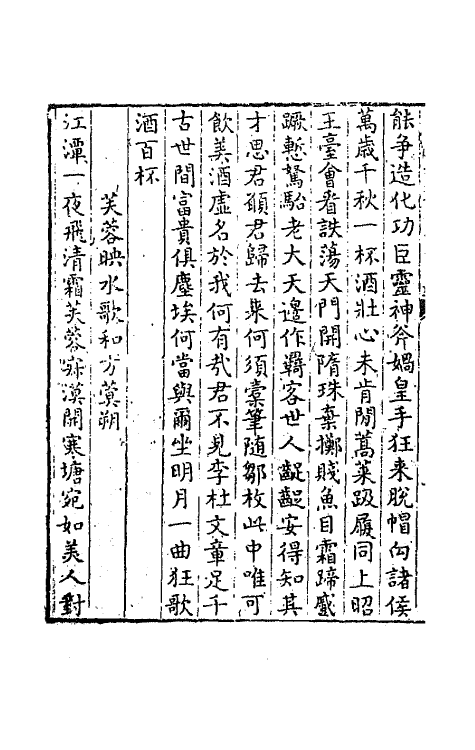 能争造化功巨靈神斧媧皇手狂来脫帽向諸侯
萬歳千秋一杯酒壮心未肯閒蒿萊趿履同上昭
王臺會看詄蕩天門開隋珠棄擲賤魚目霜蹄蹙
蹶慙駑駘老大天邊作羇客世人齪齪安得知其
才思君頋君歸去来何須槖筆随鄒枚此中唯可
飲美酒虚名於我何有㢤君不見李杜文章足千
古世間富貴俱塵埃何當與爾坐明月一曲狂歌
酒百杯
芙蓉映水歌和方蓂朔
江潭一夜飛清霜芙蓉寂漠開寒塘宛如美人對